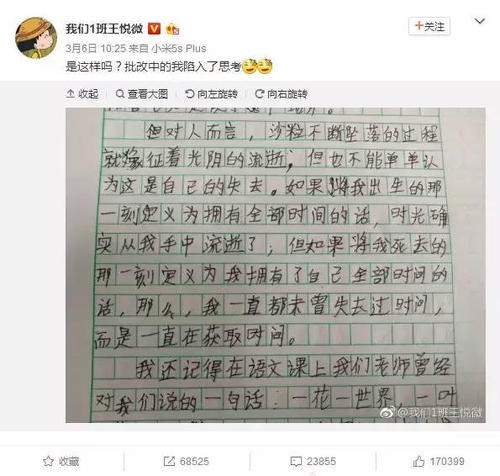 我们1班王悦微
3月6日 10:25 来自 小米5s Plus
+关注
是这样吗？批改中的我陷入了思考
收起 查看大图 向左旋转 向右旋转
但对人而言，沙粒不断坠落的过程
就象征着光阴的流逝；但也不能单单认
为这是自己的失去。如果将我出生的那
一刻定义为拥有全部时间的话，时光确
实从我手中流逝了；但如果将我死去的
那一刻定义为我拥有了自己全部时间的
话，那么，我一直都未曾失去过时间，
而是一直在获取时间。
我还记得在语文课上我们老师曾经
对我们说的一句话：一花一世界，一叶
@我们1班王悦微
收藏 68525 23855 170399